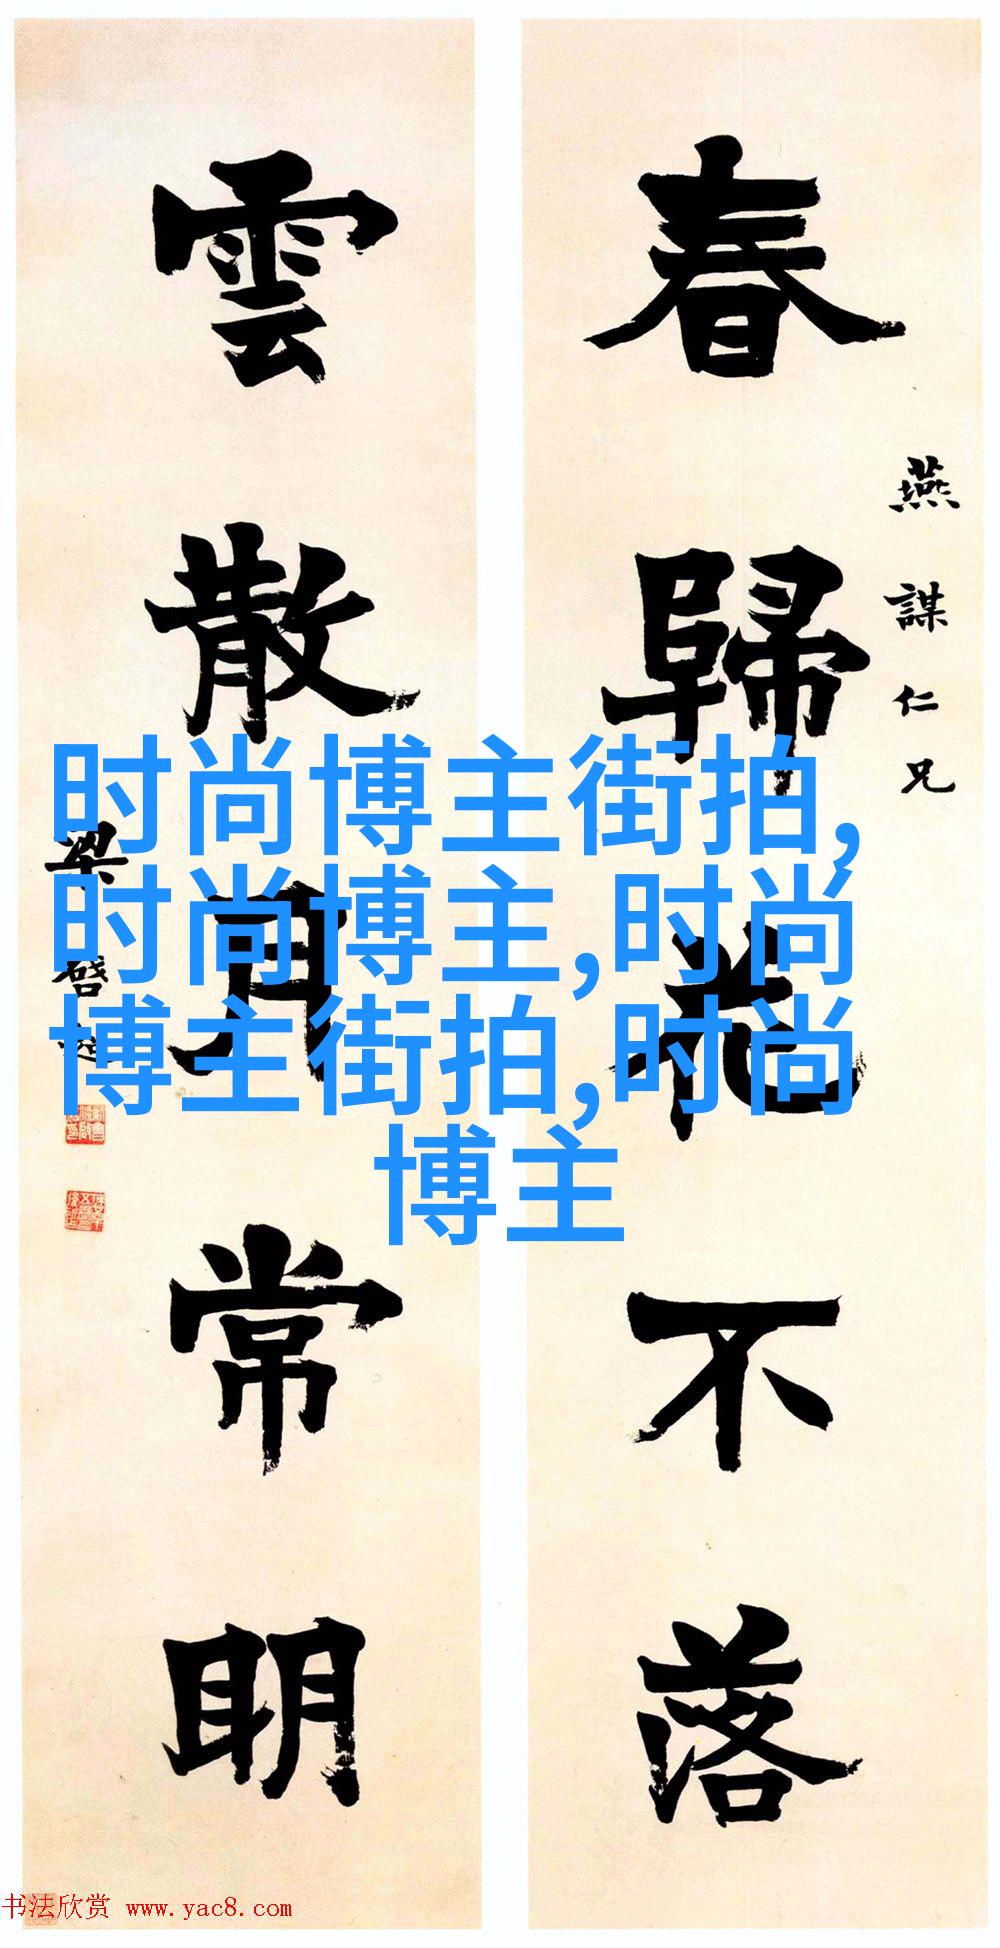 春歸花不落
燕謀仁兄
雲散月常明
梁啓超
时尚博主街拍,
时尚博主,时尚
博主街拍,时尚
博主
书法欣赏 www.yac8.com